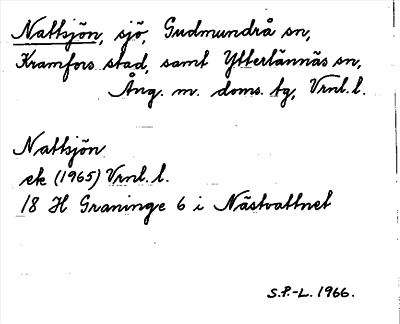 Nattsjön, sjö, Gudmundrå sn,
Kramfors stad, samt Ytterlännäs sn,
Ång. m. doms. tg, Vrnl. l.
Nattsjön
ek (1965) Vrnl. l.
18 H Graninge 6 i Nästvattnet
S.P.-L. 1966.